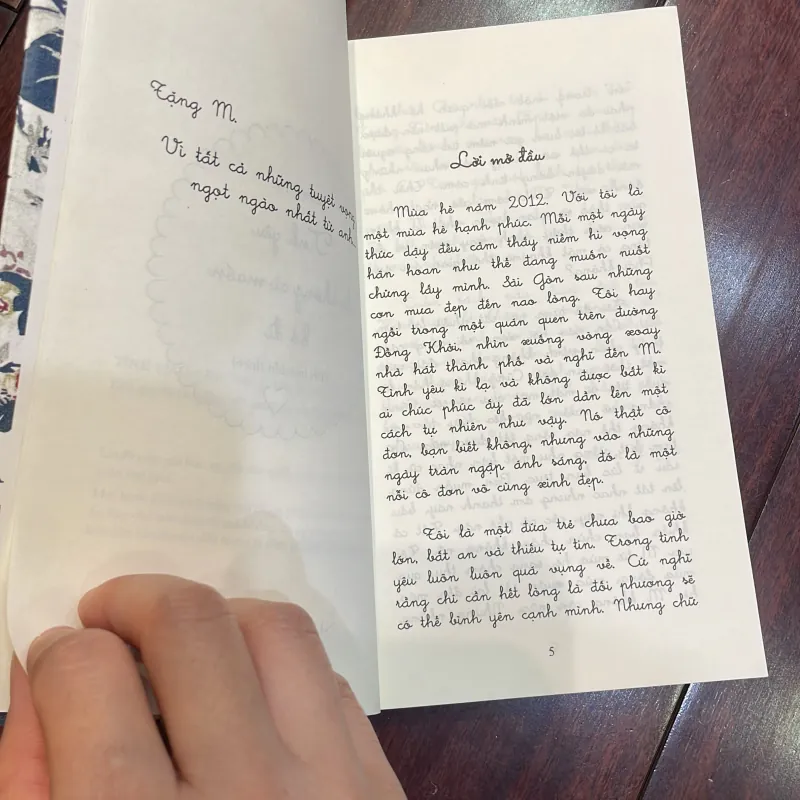 Tặng M.
Vì tất cả những tuyệt vọng
ngọt ngào nhất từ anh.
Lời mở đầu
Mùa hè năm 2012. Với tôi là
một mùa hè hạnh phúc. Mỗi một ngày
thức dậy đều cảm thấy niềm hi vọng
hân hoan như thể đang muốn nuốt
chửng lấy mình. Sài Gòn sau những
cơn mưa đẹp đến nao lòng. Tôi hay
ngồi trong một quán quen trên đường
Đồng Khởi, nhìn xuống vòng xoay
nhà hát thành phố và nghĩ đến M.
Tình yêu kì lạ và không được bất kì
ai chúc phúc ấy đã lớn dần lên một
cách tự nhiên như vậy. Nó thật cô
đơn, bạn biết không, nhưng vào những
ngày tràn ngập ánh sáng, đó là một
nỗi cô đơn vô cùng xinh đẹp.
Tôi là một đứa trẻ chưa bao giờ
lớn, bất an và thiếu tự tin. Trong tình
yêu luôn luôn quá vụng về. Cứ nghĩ
rằng chỉ cần hết lòng là đối phương sẽ
có thể bình yên cạnh mình. Nhưng chữ
5